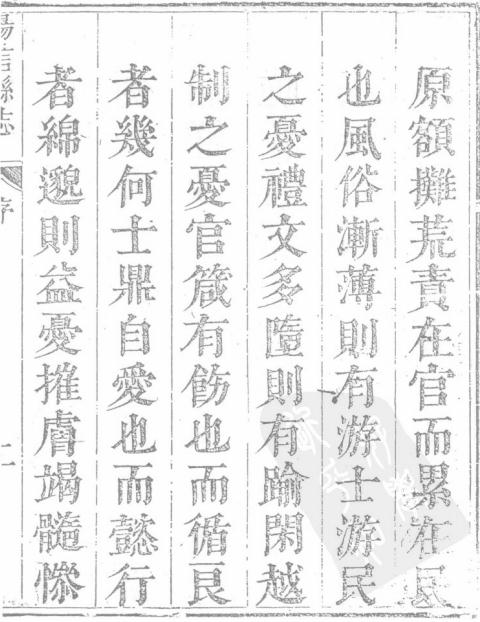 原額攤荒責在官而累在民
也風俗漸薄則有游士游民
之憂禮文多墮則有踰閑越
制之憂官箴有飭也而循良
者幾何士鼎自愛也而懿行
者綿邈則益憂摧膚竭髓慘
陽信縣志 序 二